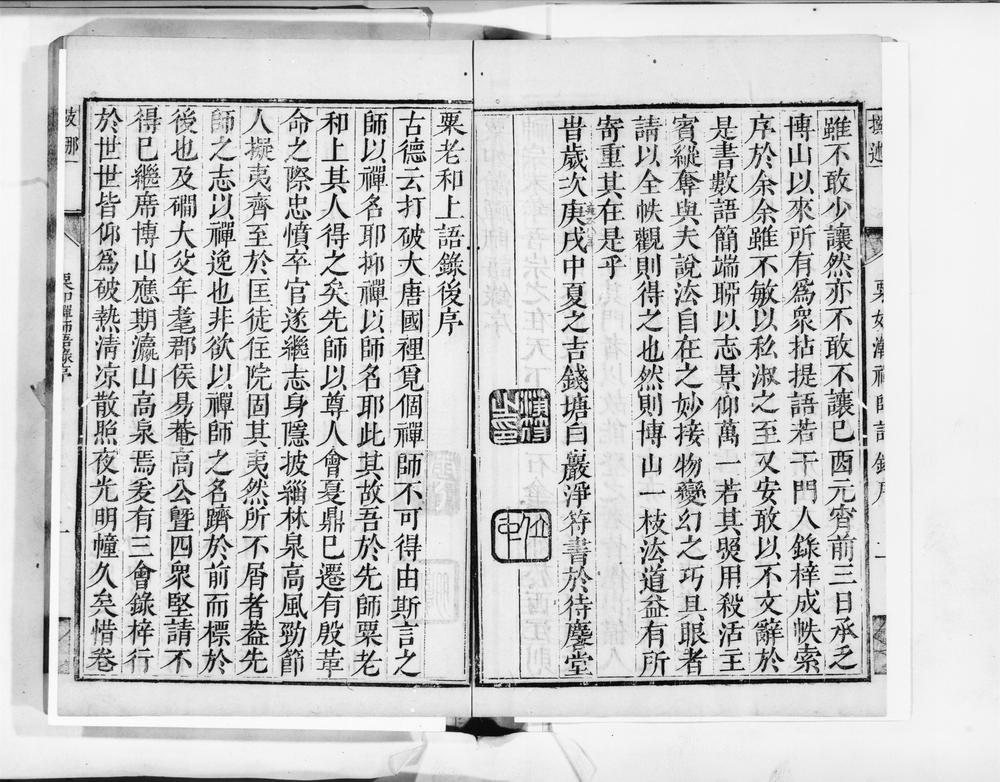 雖不敢少讓然亦不敢不讓已酉元宵前三日承乏
博山以來所有為眾拈提語若干門人錄梓成帙索
序於余余雖不敏以私淑之至又安敢以不文辭於
是書數語簡端聊以志景仰萬一若其照用殺活主
賓縱奪與夫說法自在之妙接物變幻之巧具眼者
請以全帙觀則得之也然則博山一枝法道益有所
寄重其在是乎
旹歲次庚戌中夏之吉錢塘白巖淨符書於待麈堂
粟老和上語錄後序
古德云打破大唐國裡覓個禪師不可得由斯言之
師以禪名耶抑禪以師名耶此其故吾於先師粟老
和上其人得之矣先師以尊人會戛鼎巳遷有殷革
命之際忠憤卒官遂繼志身隱披緇林泉高風勁節
人擬夷齊至於匡徒住院固其夷然所不屑者葢先
師之志以禪逸也非欲以禪師之名躋於前而標於
後也及礀大父年耄郡侯易菴高公曁四眾堅請不
得已繼席博山應期瀛山高泉焉爰有三會錄梓行
於世世皆仰為破熱清凉散照夜光明幢久矣惜卷